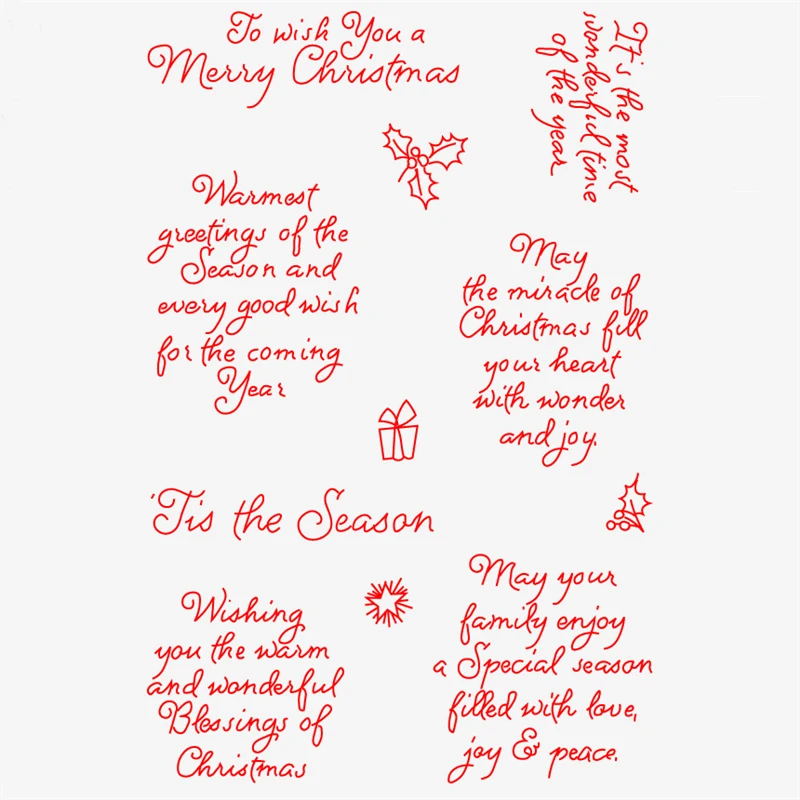 To wish You a
Merry Christmas
It's the most
wonderful time
of the year
Warmest
greetings of the
Season and
every good wish
for the coming
Year
May
the miracle of
Christmas fill
your heart
with wonder
and joy.
'Tis the Season
Wishing
you the warm
and wonderful
Blessings of
Christmas
May your
family enjoy
a Special season
filled with love,
joy & peace.